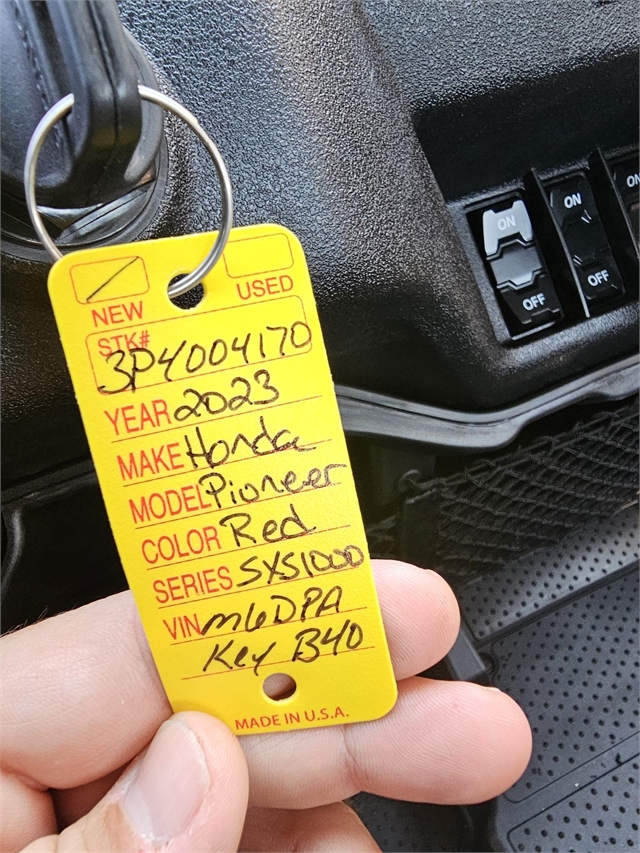 NEW USED
STK#
3P4004170
YEAR 2023
MAKE Honda
MODEL Pioneer
COLOR Red
SERIES SXS1000
VIN M6DPA
Key B40
MADE IN U.S.A.
ON ON ON
OFF OFF